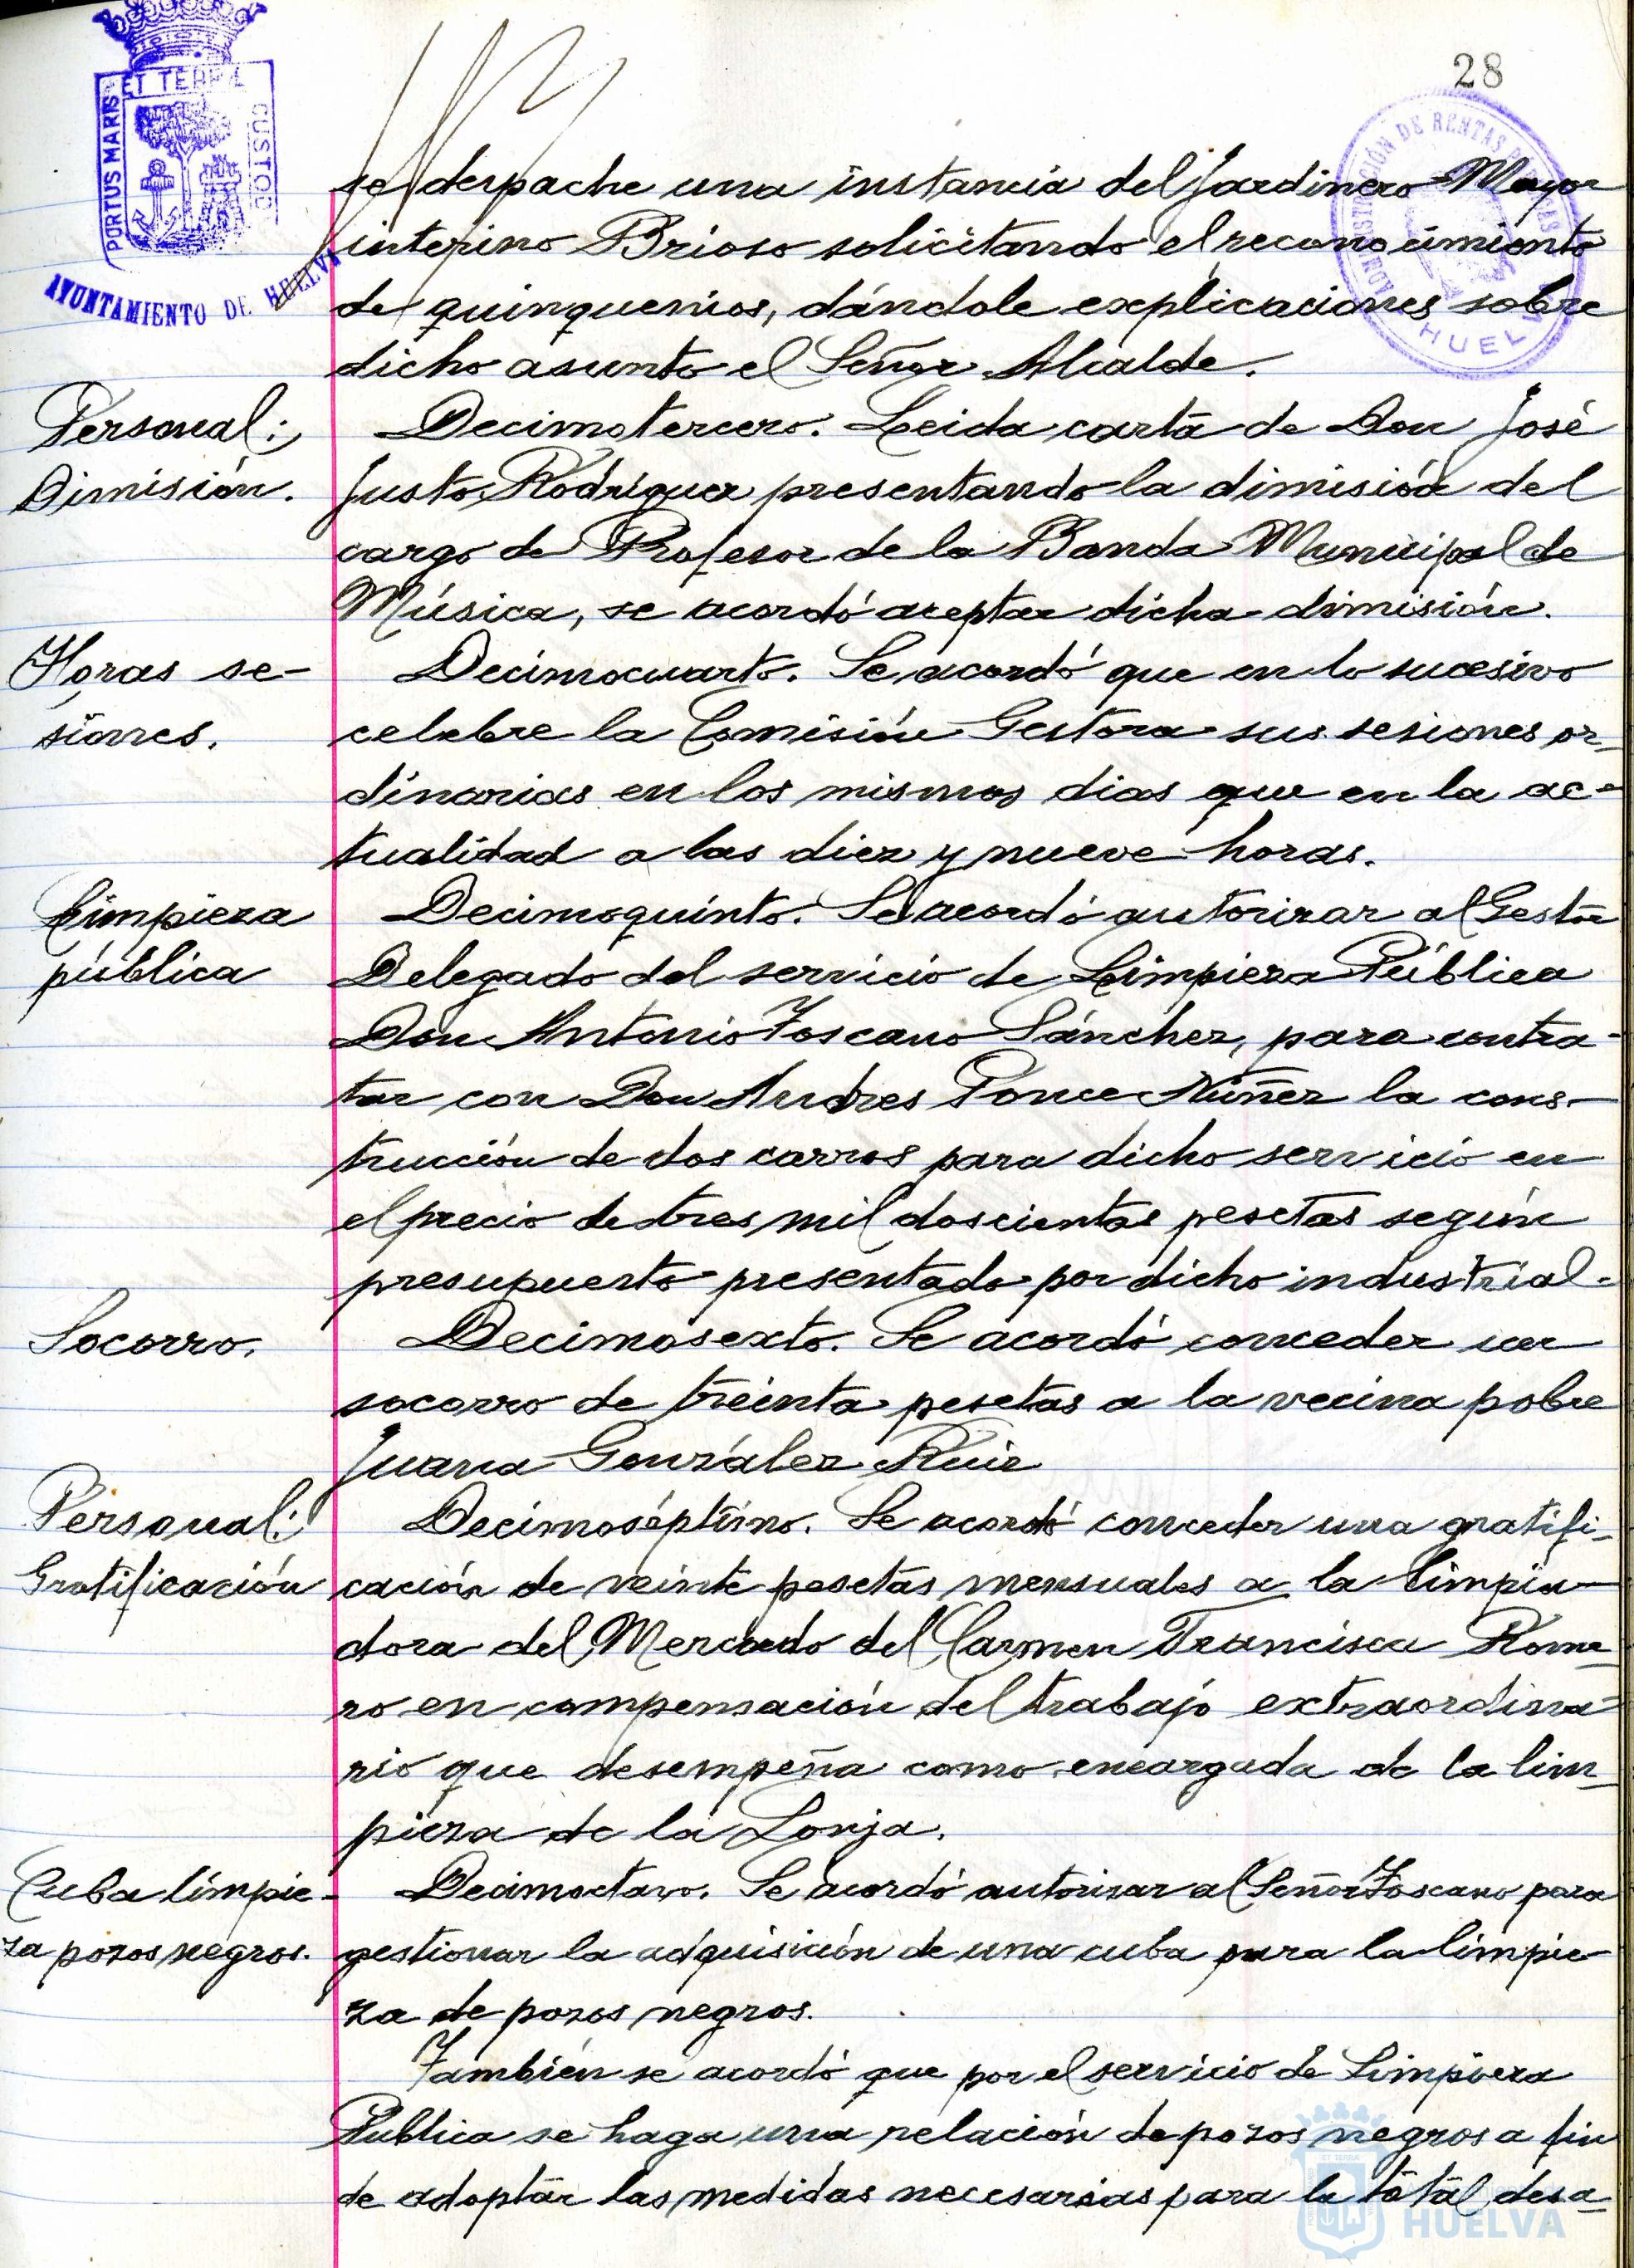 28
ET TERRÆ
PORTUS MARIS
CUSTODIA
AYUNTAMIENTO DE HUELVA
ADMINISTRACIÓN DE RENTAS PÚBLICAS
HUELVA
se despache una instancia del Jardinero Mayor
interino Brioso solicitando el reconocimiento
de quinquenios, dándole explicaciones sobre
dicho asunto el Señor Alcalde.
Personal:
Dimisión.
Decimotercero. Leida carta de Don José
Justo Rodríguez presentando la dimisión del
cargo de Profesor de la Banda Municipal de
Música, se acordó aceptar dicha dimisión.
Horas se-
siones.
Decimocuarto. Se acordó que en lo sucesivo
celebre la Comisión Gestora sus sesiones or-
dinarias en los mismos dias que en la ac-
tualidad a las diez y nueve horas.
Limpieza
pública
Decimoquinto. Se acordó autorizar al Gestor
Delegado del servicio de Limpieza Pública
Don Antonio Toscano Sánchez, para contra-
tar con Don Andres Ponce Núñez la cons-
trucción de dos carros para dicho servicio en
el precio de tres mil doscientas pesetas según
presupuesto presentado por dicho industrial.
Socorro.
Decimosexto. Se acordó conceder un
socorro de treinta pesetas a la vecina pobre
Juana González Ruiz
Personal:
Gratificación
Decimoséptimo. Se acordó conceder una gratifi-
cación de veinte pesetas mensuales a la limpia-
dora del Mercado del Carmen Francisca Rome-
ro en compensación del trabajo extraordina-
rio que desempeña como encargada de la lim-
pieza de la Lonja.
Cuba limpie-
za pozos negros.
Decimoctavo. Se acordó autorizar al Señor Toscano para
gestionar la adquisición de una cuba para la limpie-
za de pozos negros.
También se acordó que por el servicio de Limpieza
Publica se haga una relación de pozos negros a fin
de adoptar las medidas necesarias para la total desa-
HUELVA